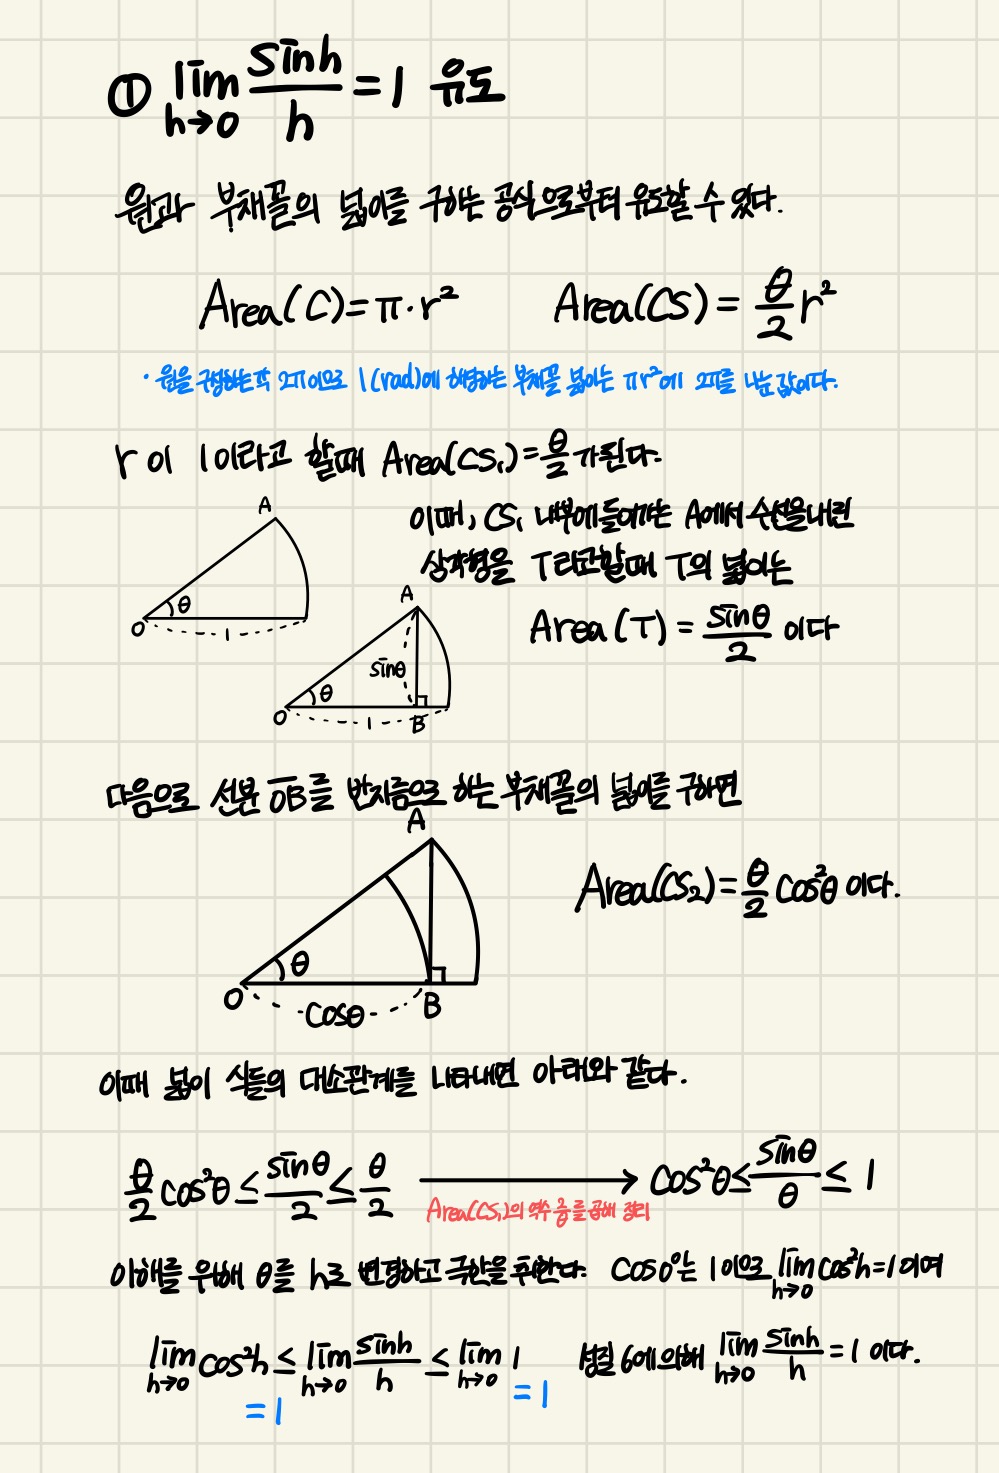 ① lim h→0 sinh/h = 1 유도
원과 부채꼴의 넓이를 구하는 공식으로부터 유도할 수 있다.
Area(C)=π·r² Area(CS)= θ/2 r²
· 원을 구성하는 각 2π이므로 1(rad)에 해당하는 부채꼴 넓이는 πr²에 2π를 나눈 값이다.
r이 1이라고 할때 Area(CS₁)=θ/2가 된다.
이때, CS₁ 내부에 들어가는 A에서 수선을 내린
삼각형을 T라고 할때 T의 넓이는
Area(T) = sinθ/2 이다
A
θ
O
1
A
sinθ
θ
O
1
B
다음으로 선분 OB를 반지름으로 하는 부채꼴의 넓이를 구하면
A
Area(CS₂)=θ/2 cos²θ 이다.
θ
O
cosθ
B
이때 넓이 식들의 대소관계를 나타내면 아래와 같다.
θ/2 cos²θ ≤ sinθ/2 ≤ θ/2 → cos²θ ≤ sinθ/θ ≤ 1
Area(CS₁)의 역수 를 곱해 정리
이해를 위해 θ를 h로 변경하고 극한을 취한다. cos0°는 1이므로 lim h→0 cos²h=1이며
lim h→0 cos²h ≤ lim h→0 sinh/h ≤ lim h→0 1 성질 6에 의해 lim h→0 sinh/h = 1 이다.
=1 =1